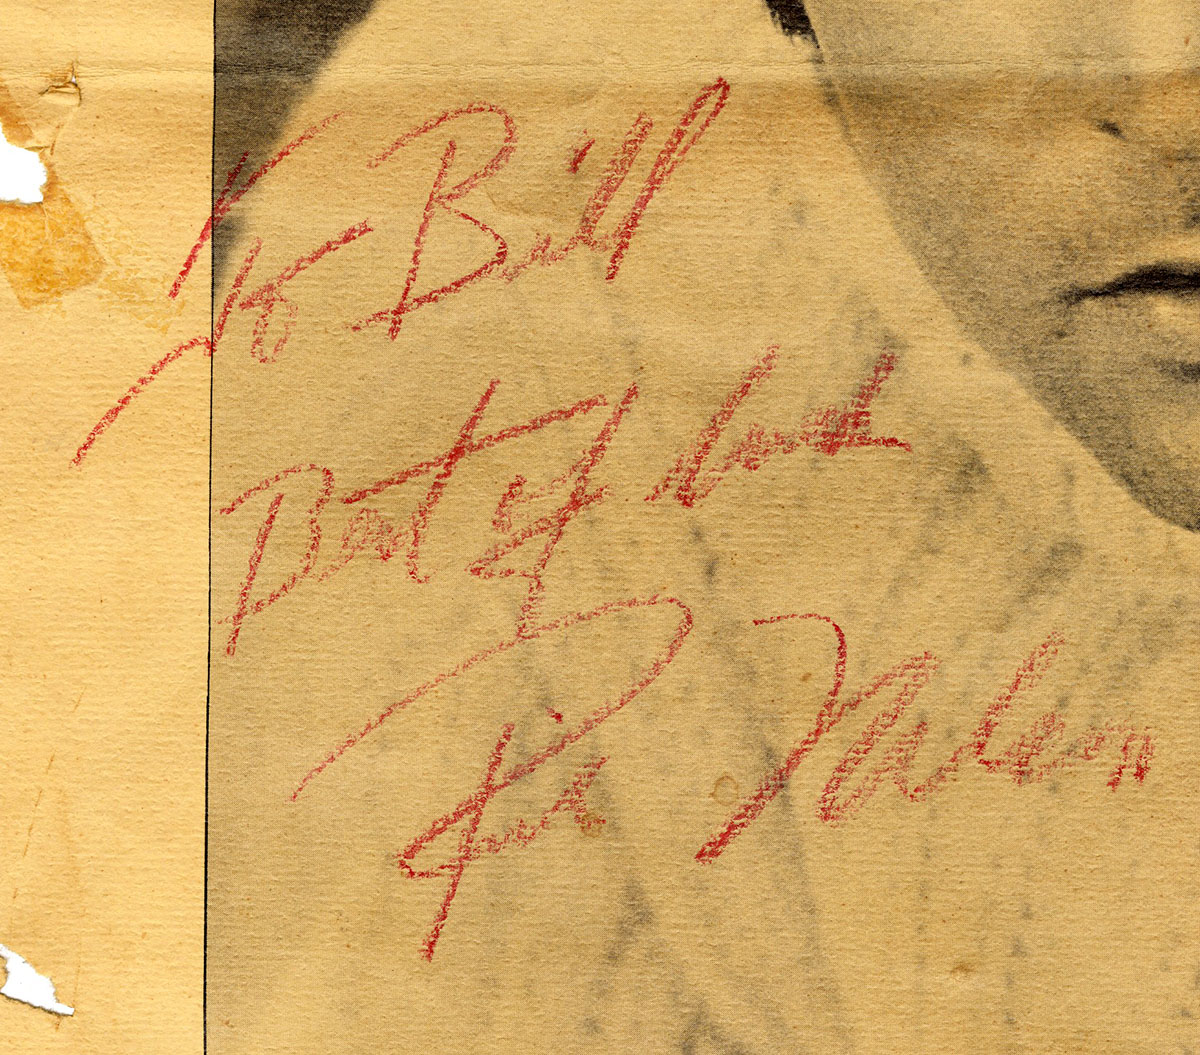 To Bill
Best of luck
Rick Nelson